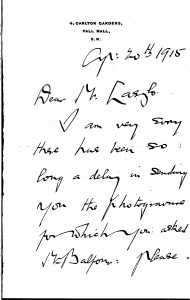 4, CARLTON GARDENS,
PALL MALL,
S.W.
Ap: 20th 1915
Dear Mr. Laszlo
I am very sorry
there has been so
long a delay in sending
you the photogravure
for which you asked
Mr Balfour: please